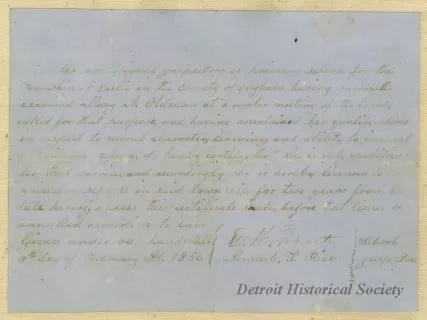 inspectors of primary schools for the
Township of in the County of Ingham having personally
examined Mary A. Oldman at a meeting of the board
called for that purpose, and having ascertained her qualifications
in respect to moral character, learning and ability to instruct
a school, do hereby certify that she is duly qualified
for that service, and accordingly she is hereby licensed to
primary schools in said township for two years from the
date hereof, unless the certificate before that time, be
annulled according to law
Given under our hands this
day of February A.D. 1850
School
Inspectors
Detroit Historical Society